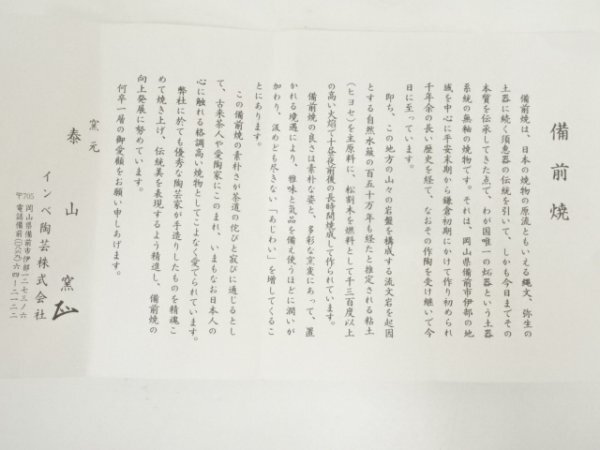 備前焼
備前焼は、日本の焼物の原流ともいえる縄文、弥生の
土器に続く須恵器の伝統を引いて、しかも今日までその
本質を伝承してきた点で、わが国唯一の炻器という土器
系統の無釉の焼物です。それは、岡山県備前市伊部の地
域を中心に平安末期から鎌倉初期にかけて作り初められ
千年余の長い歴史を経て、なおその作陶を受け継いで今
日に至っています。
即ち、この地方の山々の岩盤を構成する流文岩を起因
とする自然水簸の百五十万年も経たと推定される粘土
(ヒヨセ)を主原料に、松割木を燃料として千三百度以上
の高い火焰で十昼夜前後の長時間焼成して作られています。
備前焼の良さは素朴な姿と、多彩な窯変にあって、置
かれる境遇により、雅味と気品を備え使うほどに潤いが
加わり、汲めども尽きない「あじわい」を増してくるこ
とにあります。
この備前焼の素朴さが茶道の侘びと寂びに通じるとし
て、古来茶人や愛陶家にこのまれ、いまもなお日本人の
心に触れる格調高い焼物としてこよなく愛でられています。
弊社に於ても優秀な陶芸家が手造りしたものを精魂こ
めて焼き上げ、伝統美を表現するよう精進し、備前焼の
向上発展に努めています。
何卒一層の御愛顧をお願い申しあげます。
窯元
泰山窯
インベ陶芸株式会社
〒705 岡山県備前市伊部一二七三ノ六